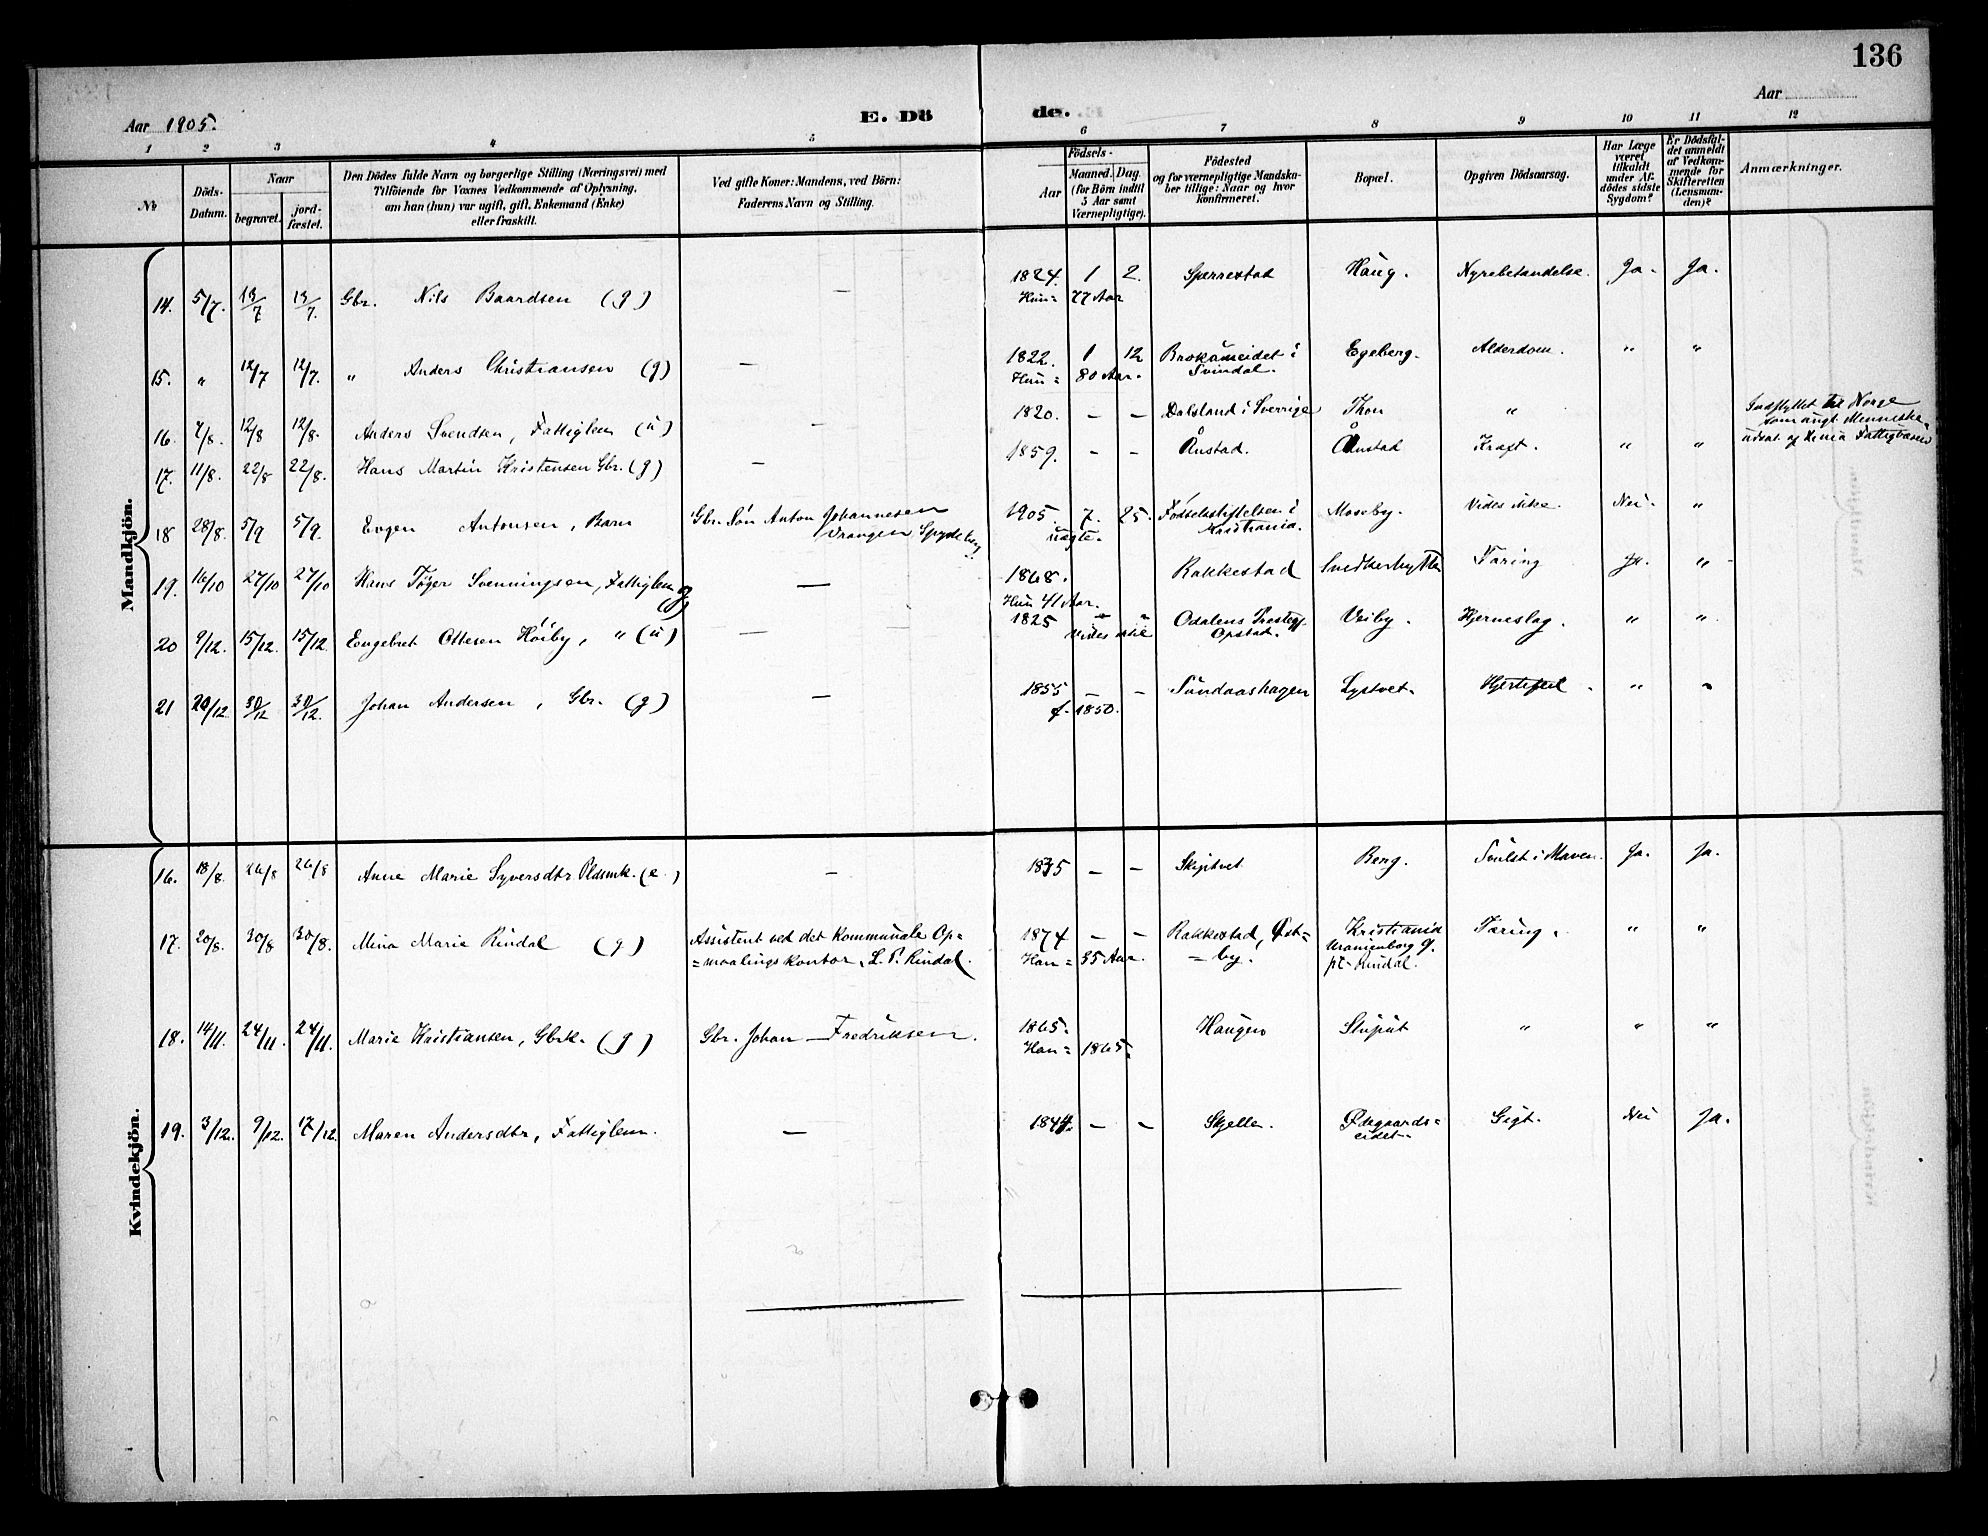 136
Aar 1905.
E. Dö de.
Aar
1 2 3 4 5 6 7 8 9 10 11 12
№
Döds-Datum.
Naar
begravet.
jord-fæstet.
Den Dödes fulde Navn og borgerlige Stilling (Næringsvei) med
Tilföiende for Voxnes Vedkommende af Oplysning,
om han (hun) var ugift, gift, Enkemand (Enke)
eller fraskilt.
Ved gifte Koner: Mandens, ved Börn:
Faderens Navn og Stilling.
Födsels-
Aar
Maaned. Dag.
(for Börn indtil
5 Aar samt
Værnepligtige).
Födested
og for værnepligtige Mandska-
ber tillige: Naar og hvor
konfirmeret.
Bopæl.
Opgiven Dödsaarsag.
Har Læge
været
tilkaldt
under Af-
dödes sidste
Sygdom?
Er Dödsfal-
det anmeldt
af Vedkom-
mende for
Skifteretten
(Lensman-
den)?
Anmærkninger.
Mandkjön.
14. 5/7. 13/7 13/7. Gbr. Nils Baardsen (g) — 1824. 1 2. Sperrestad Haug. Nyrebetændelse. Ja. Ja.
Hun = 77 Aar
15. " 12/7 12/7. " Anders Christiansen (g) — 1822. 1 12 i Egeberg. Alderdom. " "
Hun = 80 Aar. Svindal.
16. 7/8. 12/8 12/8. Anders Svendsen, Fattiglem (u) — 1820. — — Dalsland i Sverrige Thon " Indflyttet til Norge
som ungt Menneske
Fattigvæsen
17. 11/8. 22/8 22/8. Hans Martin Kristensen Gbr. (g) — 1859. — — Ånstad. Ånstad Kræft. " "
18 28/8. 5/9 5/9. Evgen Antonsen, Barn Gbr. Søn Anton Johannesen 1905. 7. 25. Fødselsstiftelsen i Moseby. Vides ikke. Nei. "
Vrangen, Spydeberg uægte. Kristiania.
19. 16/10 27/10 27/10 Hans Tøger Svenningsen, Fattiglem — 1868. Rakkestad Tæring Ja. "
(g) Hun 41 Aar.
20 9/12. 15/12. 15/12 Engebret Ottesen Høiby, " (u) — 1825 " " Odalens Prestegj. Veiby. Hjerneslag. " "
Vides ikke Opstad.
21 20/12. 30/12 30/12. Johan Andersen, Gbr. (g) — 1855 — — Sundaashagen Lystvet. Hjertefeil. " "
f. 1850.
Kvindekjön.
16. 18/8. 26/8 26/8 Anne Marie Syversdtr Pldsmk. (e.) — 1835 — — Skiptvet Berg. Svulst i Maven. Ja. Ja.
17. 20/8. 30/8 30/8. Mina Marie Rindal (g) Assistent ved det kommunale Op= 1874 — — Rakkestad, Øst= Kristiania Tæring. " "
=maalingskontor, L. P. Rindal. Han = 35 Aar. =by. Uranienborg
pt. Rindal.
18. 14/11. 24/11. 24/11. Marie Kristiansen, Gbrk. (g) Gbr. Johan — Fredriksen. 1865. Haugen Stuput " " "
Han = 1865.
19. 3/12. 9/12. 17/12. Maren Andersdtr, Fattiglem. — 1844. — — Skjelle. Ødegaards= Gigt. Nei Ja.
eidet.